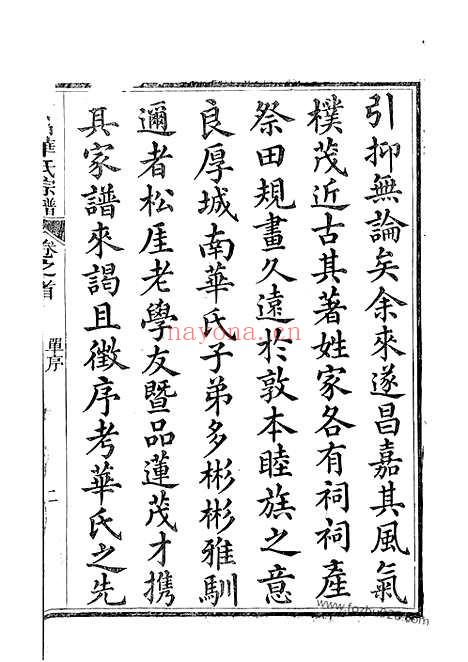 引抑無論矣余來遂昌嘉其風氣
樸茂近古其著姓家各有祠祠產
祭田規畫久遠於敦本睦族之意
良厚城南華氏子弟多彬彬雅馴
邇者松厓老學友暨品蓮茂才携
具家譜來謁且徵序考華氏之先
華氏宗譜
卷之首
單序
二
nayona.cn